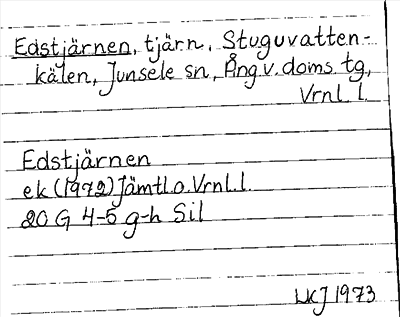 Edstjärnen, tjärn, Stuguvatten-
kälen, Junsele sn, Ång.v.doms. tg,
Vrnl. l.
Edstjärnen
ek (1972) Jämtl.o.Vrnl.l.
20 G 4-5 g-h Sil
LKJ 1973